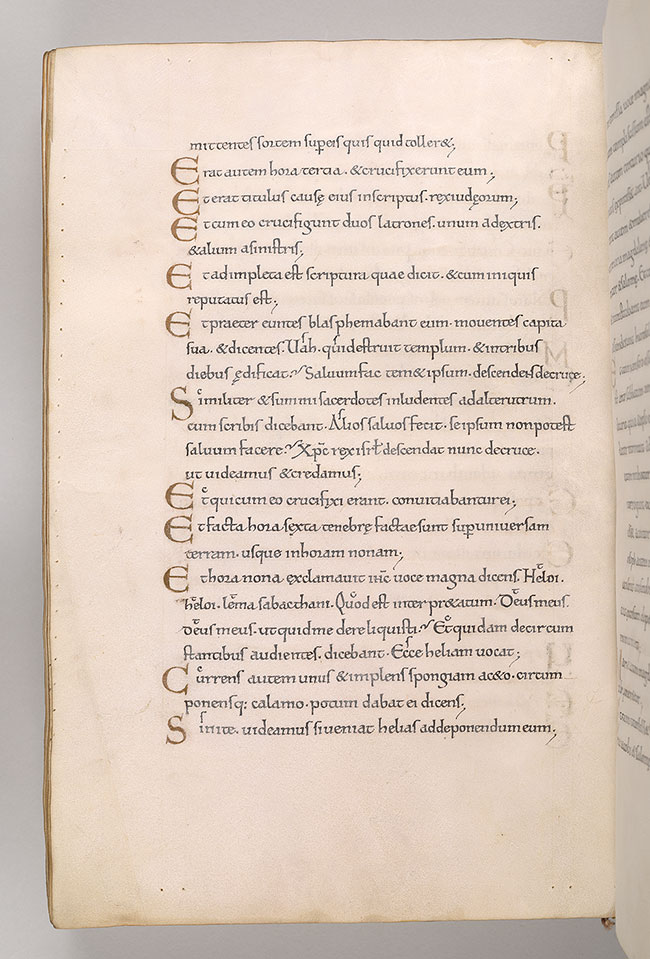 mittentes sortem sup eis quis quid toller&;
Erat autem hora tertia. & crucifixerunt eum;
Et erat titulus causę eius inscriptus. rex iudęorum;
Et cum eo crucifigunt duos latrones. unum a dextris.
& alium a sinistris;
Et adimpleta est scriptura quae dicit. & cum iniquis
reputatus est;
Et praeter euntes blasphemabant eum. mouentes capita
sua. & dicentes. Uah. qui destruit templum. & in tribus
diebus ędificat. Saluum fac tem&ipsum. descendens de cruce;
Similiter & summi sacerdotes inludentes ad alterutrum.
cum scribis dicebant. Alios saluos fecit. se ipsum non potest
saluum facere. Xpc rex isrl descendat nunc de cruce.
ut uideamus & credamus;
Et qui cum eo crucifixi erant. conuitiabantur ei;
Et facta hora sexta tenebrę factae sunt sup uniuersam
terram. usque in horam nonam;
Et hora nona. exclamauit ihc uoce magna dicens. Heloi.
heloi. lema sabacthani. Quod est interpr&atum. Deus meus.
deus meus. ut quid me dereliquisti. Et quidam de circum
stantibus audientes. dicebant. Ecce heliam uocat;
Currens autem unus & implens spongiam ac&o. circum
ponensq; calamo. potum dabat ei dicens;
Sinite. uideamus si ueniat helias ad deponendum eum;